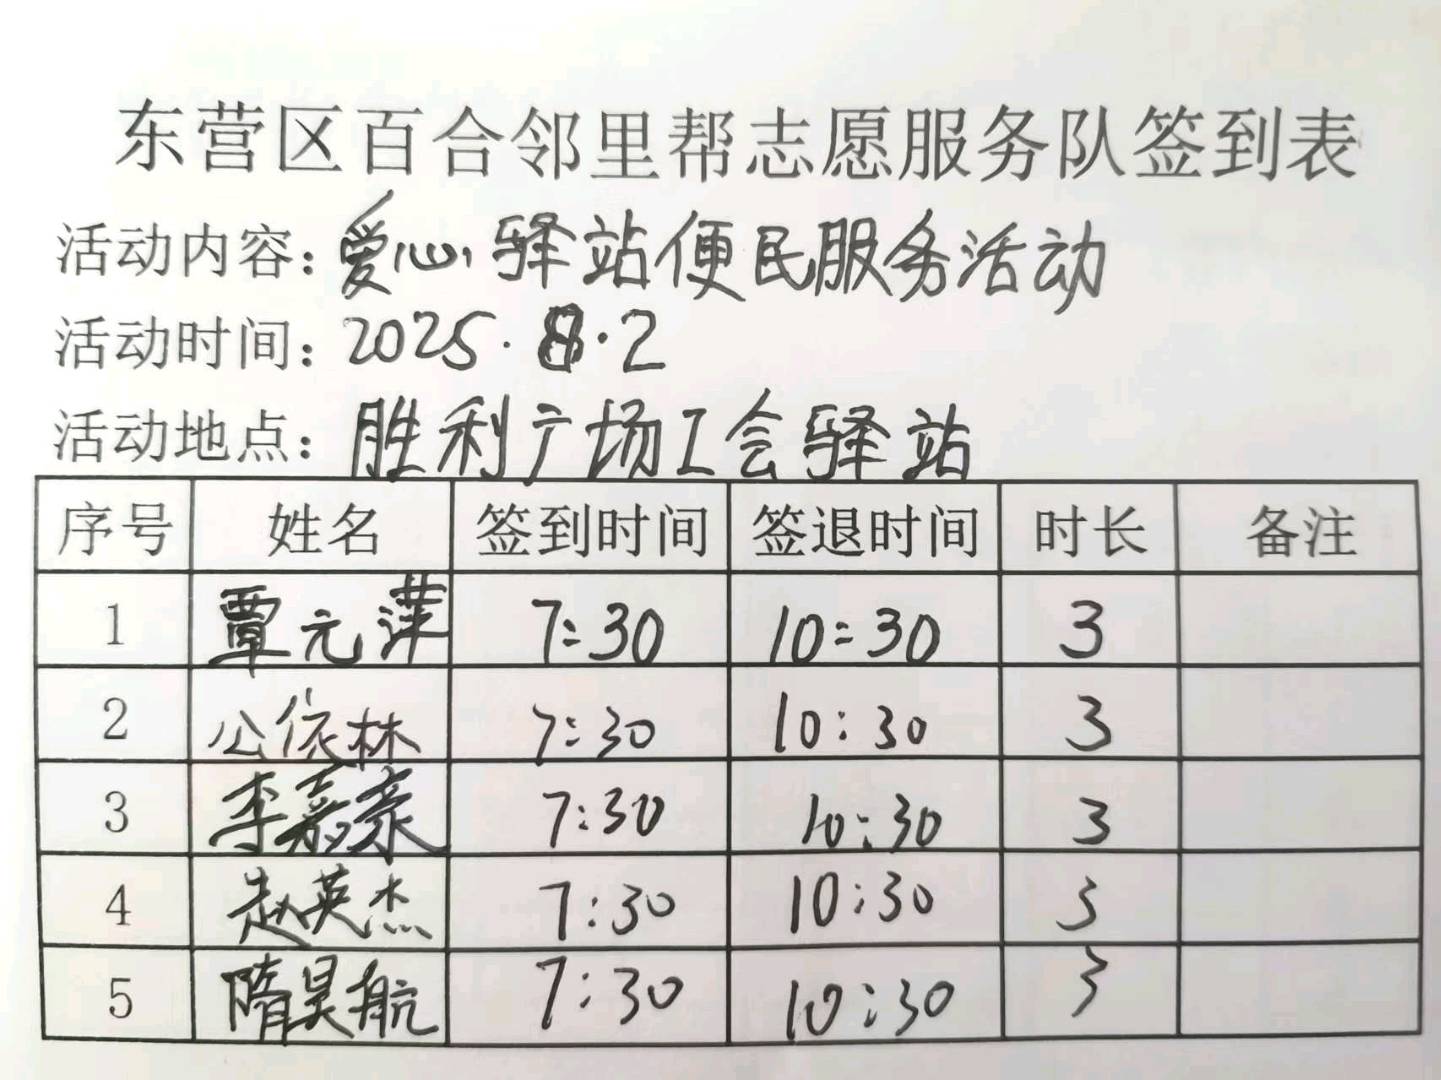 东营区百合邻里帮志愿服务队签到表
活动内容：爱心驿站便民服务活动
活动时间：2025.8.2
活动地点：胜利广场工会驿站
序号 姓名 签到时间 签退时间 时长 备注
1 覃元 7:30 10:30 3
2 公依林 7:30 10:30 3
3 李嘉豪 7:30 10:30 3
4 赵英杰 7:30 10:30 3
5 隋昊航 7:30 10:30 3